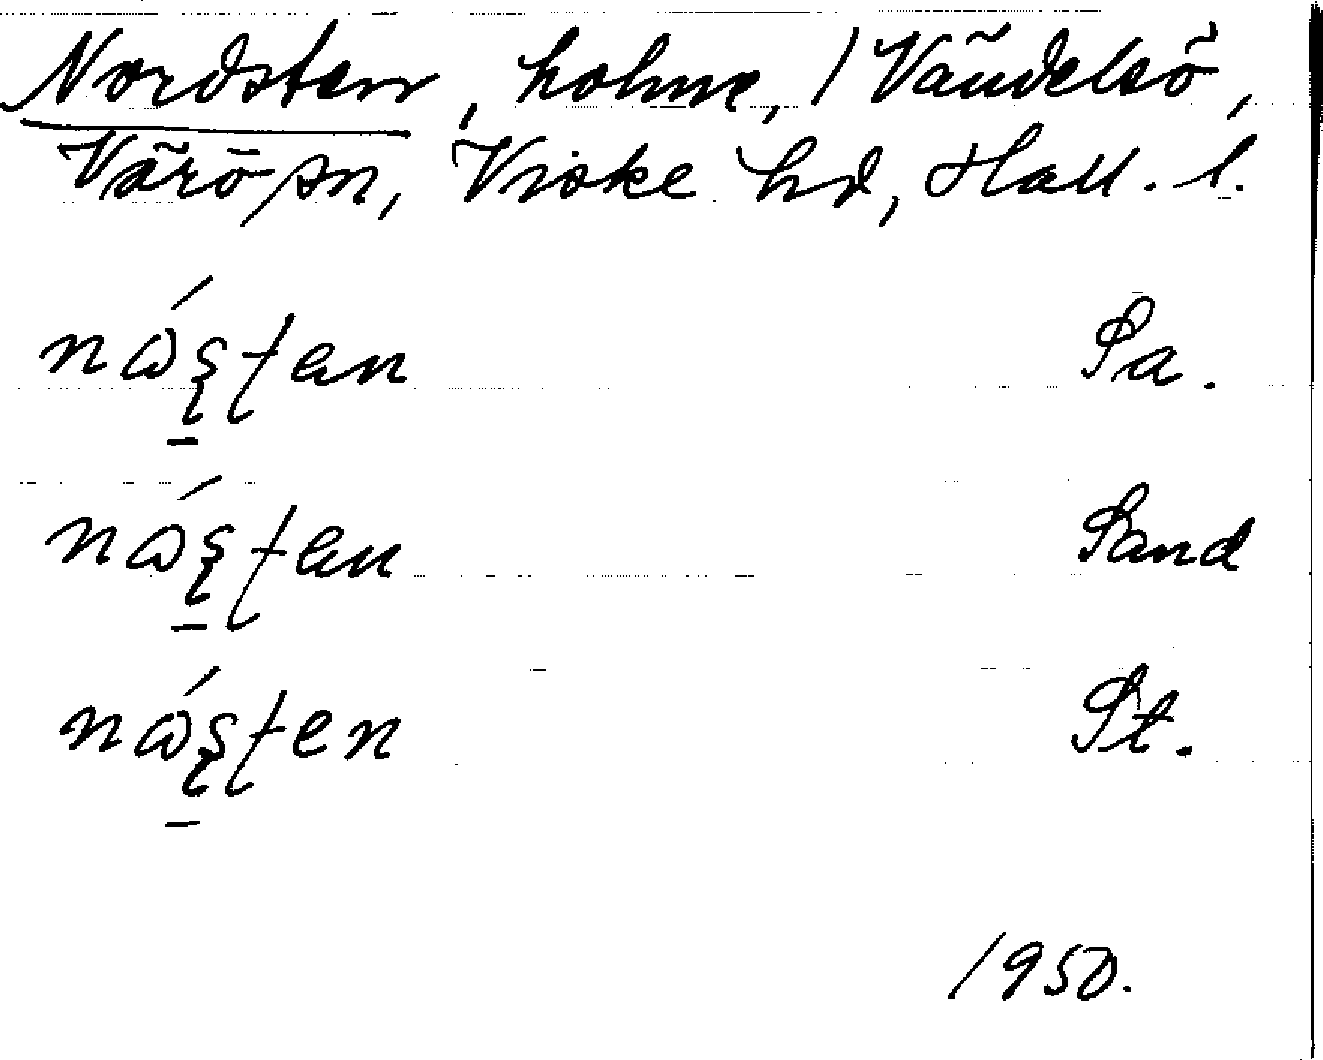 Nordsten, holme, / Vändelsö,
Värö sn, Viske hd, Hall. l.
nɷ́ʂʈen Sa.
nɷ́ʂʈen Sand
nɷ́ʂʈen St.
1950.